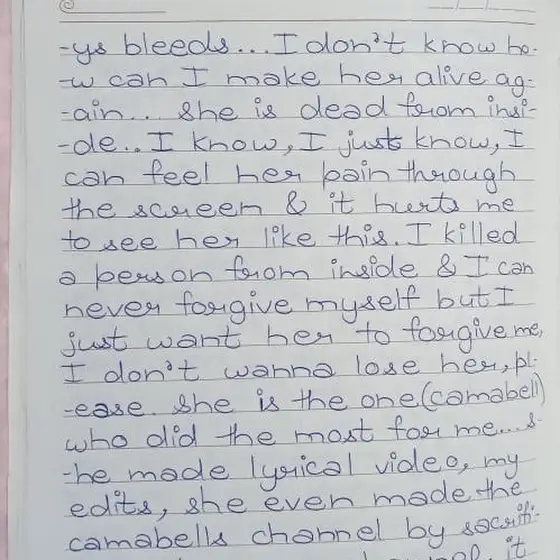 -ys bleeds... I don't know ho-
-w can I make her alive ag-
-ain... she is dead from insi-
-de.. I know, I just know, I
can feel her pain through
the screen & it hurts me
to see her like this. I killed
a person from inside & I can
never forgive myself but I
just want her to forgive me,
I don't wanna lose her, pl-
-ease. she is the one (camabell)
who did the most for me... s-
-he made lyrical video, my
edits, she even made the
camabells channel by sacrifi-
it